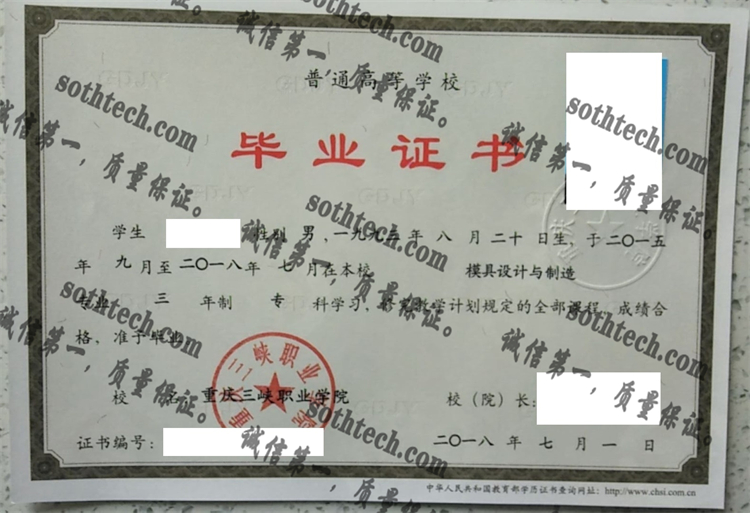 普通高等学校
毕业证书
学生 性别 男，一九九三年 八 月 二十 日生，于二〇一五
年 九 月至 二〇一八 年 七 月在本校 模具设计与制造
专业 三 年制 专 科学习，修完教学计划规定的全部课程，成绩合
格，准予毕业。
校 名：重庆三峡职业学院 校（院）长：
证书编号： 二〇一八 年 七 月 一 日
中华人民共和国教育部学历证书查询网址：http://www.chsi.com.cn
sothtech.com
诚信第一，质量保证。
sothtech.com
诚信第一，质量保证。
sothtech.com
诚信第一，质量保证。
sothtech.com
诚信第一，质量保证。
sothtech.com
诚信第一，质量保证。
sothtech.com
诚信第一，质量保证。
sothtech.com
诚信第一，质量保证。
sothtech.com
诚信第一，质量保证。